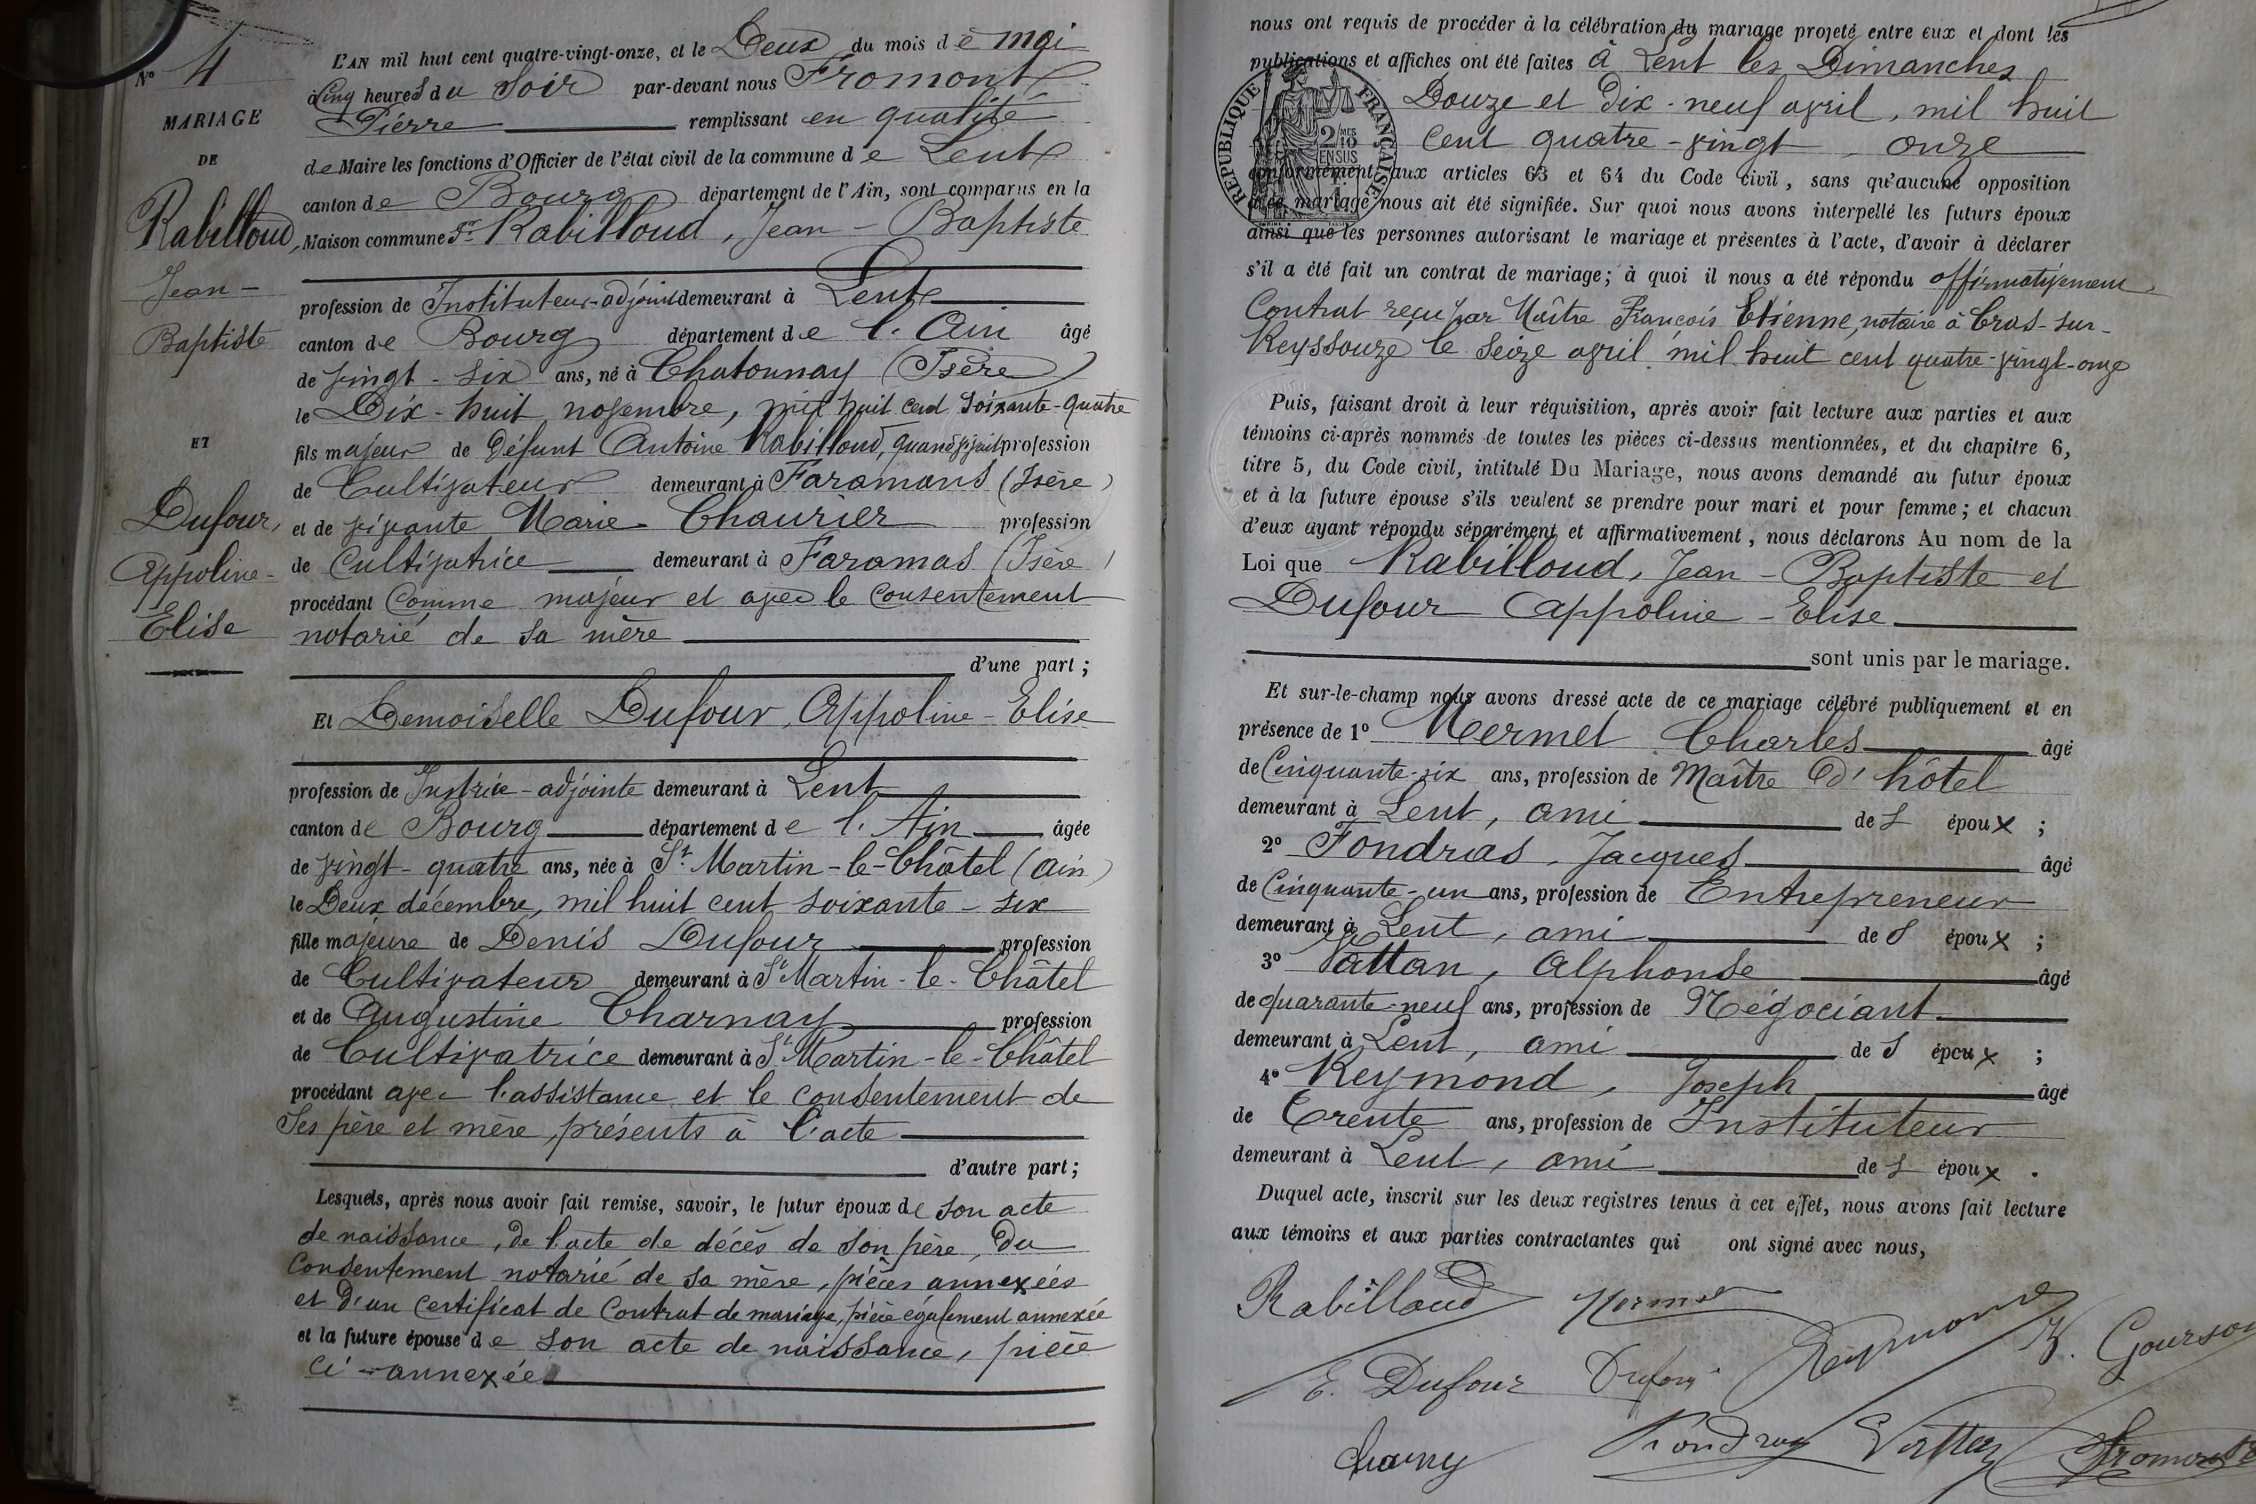 N° 4
MARIAGE
DE
Rabilloud,
Jean-
Baptiste
ET
Dufour,
Appoline-
Elise
L'AN mil huit cent quatre-vingt-onze, et le Deux du mois de mai
à Cinq heures du Soir par-devant nous Fromont
Pierre remplissant en qualité
de Maire les fonctions d'Officier de l'état civil de la commune de Lent
canton de Bourg département de l'Ain, sont comparus en la
Maison commune Sr Rabilloud, Jean-Baptiste
profession de Instituteur-adjoint demeurant à Lent
canton de Bourg département de l'Ain âgé
de vingt-six ans, né à Chatonnay (Isère)
le Dix-huit novembre, mil huit cent soixante-quatre
fils majeur de Défunt Antoine Rabilloud, quand vivait profession
de Cultivateur demeurant à Faramans (Isère)
et de vivante Marie Chaurier profession
de Cultivatrice demeurant à Faramas (Isère)
procédant Comme majeur et avec le consentement
notarié de sa mère
d'une part ;
Et Demoiselle Dufour, Appoline-Elise
profession de Instrice-adjointe demeurant à Lent
canton de Bourg département de l'Ain âgée
de vingt-quatre ans, née à St Martin-le-Châtel (Ain)
le Deux décembre, mil huit cent soixante-six
fille majeure de Denis Dufour profession
de Cultivateur demeurant à St Martin-le-Châtel
et de Augustine Charnay profession
de Cultivatrice demeurant à St Martin-le-Châtel
procédant avec l'assistance et le consentement de
Ses père et mère, présents à l'acte
d'autre part ;
Lesquels, après nous avoir fait remise, savoir, le futur époux de son acte
de naissance, de l'acte de décès de son père, du
consentement notarié de sa mère, pièces annexées
et d'un certificat de contrat de mariage, pièce également annexée
et la future épouse de son acte de naissance, pièce
ci-annexée
nous ont requis de procéder à la célébration du mariage projeté entre eux et dont les
publications et affiches ont été faites à Lent les Dimanches
Douze et Dix-neuf avril, mil huit
cent quatre-vingt-onze
conformément aux articles 63 et 64 du Code civil, sans qu'aucune opposition
à ce mariage nous ait été signifiée. Sur quoi nous avons interpellé les futurs époux
ainsi que les personnes autorisant le mariage et présentes à l'acte, d'avoir à déclarer
s'il a été fait un contrat de mariage; à quoi il nous a été répondu affirmativement
Contrat reçu par Maître François Etienne, notaire à Cras-sur-
Reyssouze le seize avril mil huit cent quatre-vingt-onze
REPUBLIQUE FRANÇAISE
2 MES 10
EN SUS
Puis, faisant droit à leur réquisition, après avoir fait lecture aux parties et aux
témoins ci-après nommés de toutes les pièces ci-dessus mentionnées, et du chapitre 6,
titre 5, du Code civil, intitulé Du Mariage, nous avons demandé au futur époux
et à la future épouse s'ils veulent se prendre pour mari et pour femme ; et chacun
d'eux ayant répondu séparément et affirmativement, nous déclarons Au nom de la
Loi que Rabilloud, Jean-Baptiste et
Dufour Appoline-Elise
sont unis par le mariage.
Et sur-le-champ nous avons dressé acte de ce mariage célébré publiquement et en
présence de 1° Mermet Charles âgé
de Cinquante-six ans, profession de Maître d'hôtel
demeurant à Lent, ami des époux ;
2° Fondras, Jacques âgé
de Cinquante-un ans, profession de Entrepreneur
demeurant à Lent, ami des époux ;
3° Vattan, Alphonse âgé
de quarante-neuf ans, profession de Négociant
demeurant à Lent, ami des époux ;
4° Reymond, Joseph âgé
de Trente ans, profession de Instituteur
demeurant à Lent, ami des époux.
Duquel acte, inscrit sur les deux registres tenus à cet effet, nous avons fait lecture
aux témoins et aux parties contractantes qui ont signé avec nous,
Rabilloud Mermet Reymond
E. Dufour Dufour
Fondras Vattan Fromont